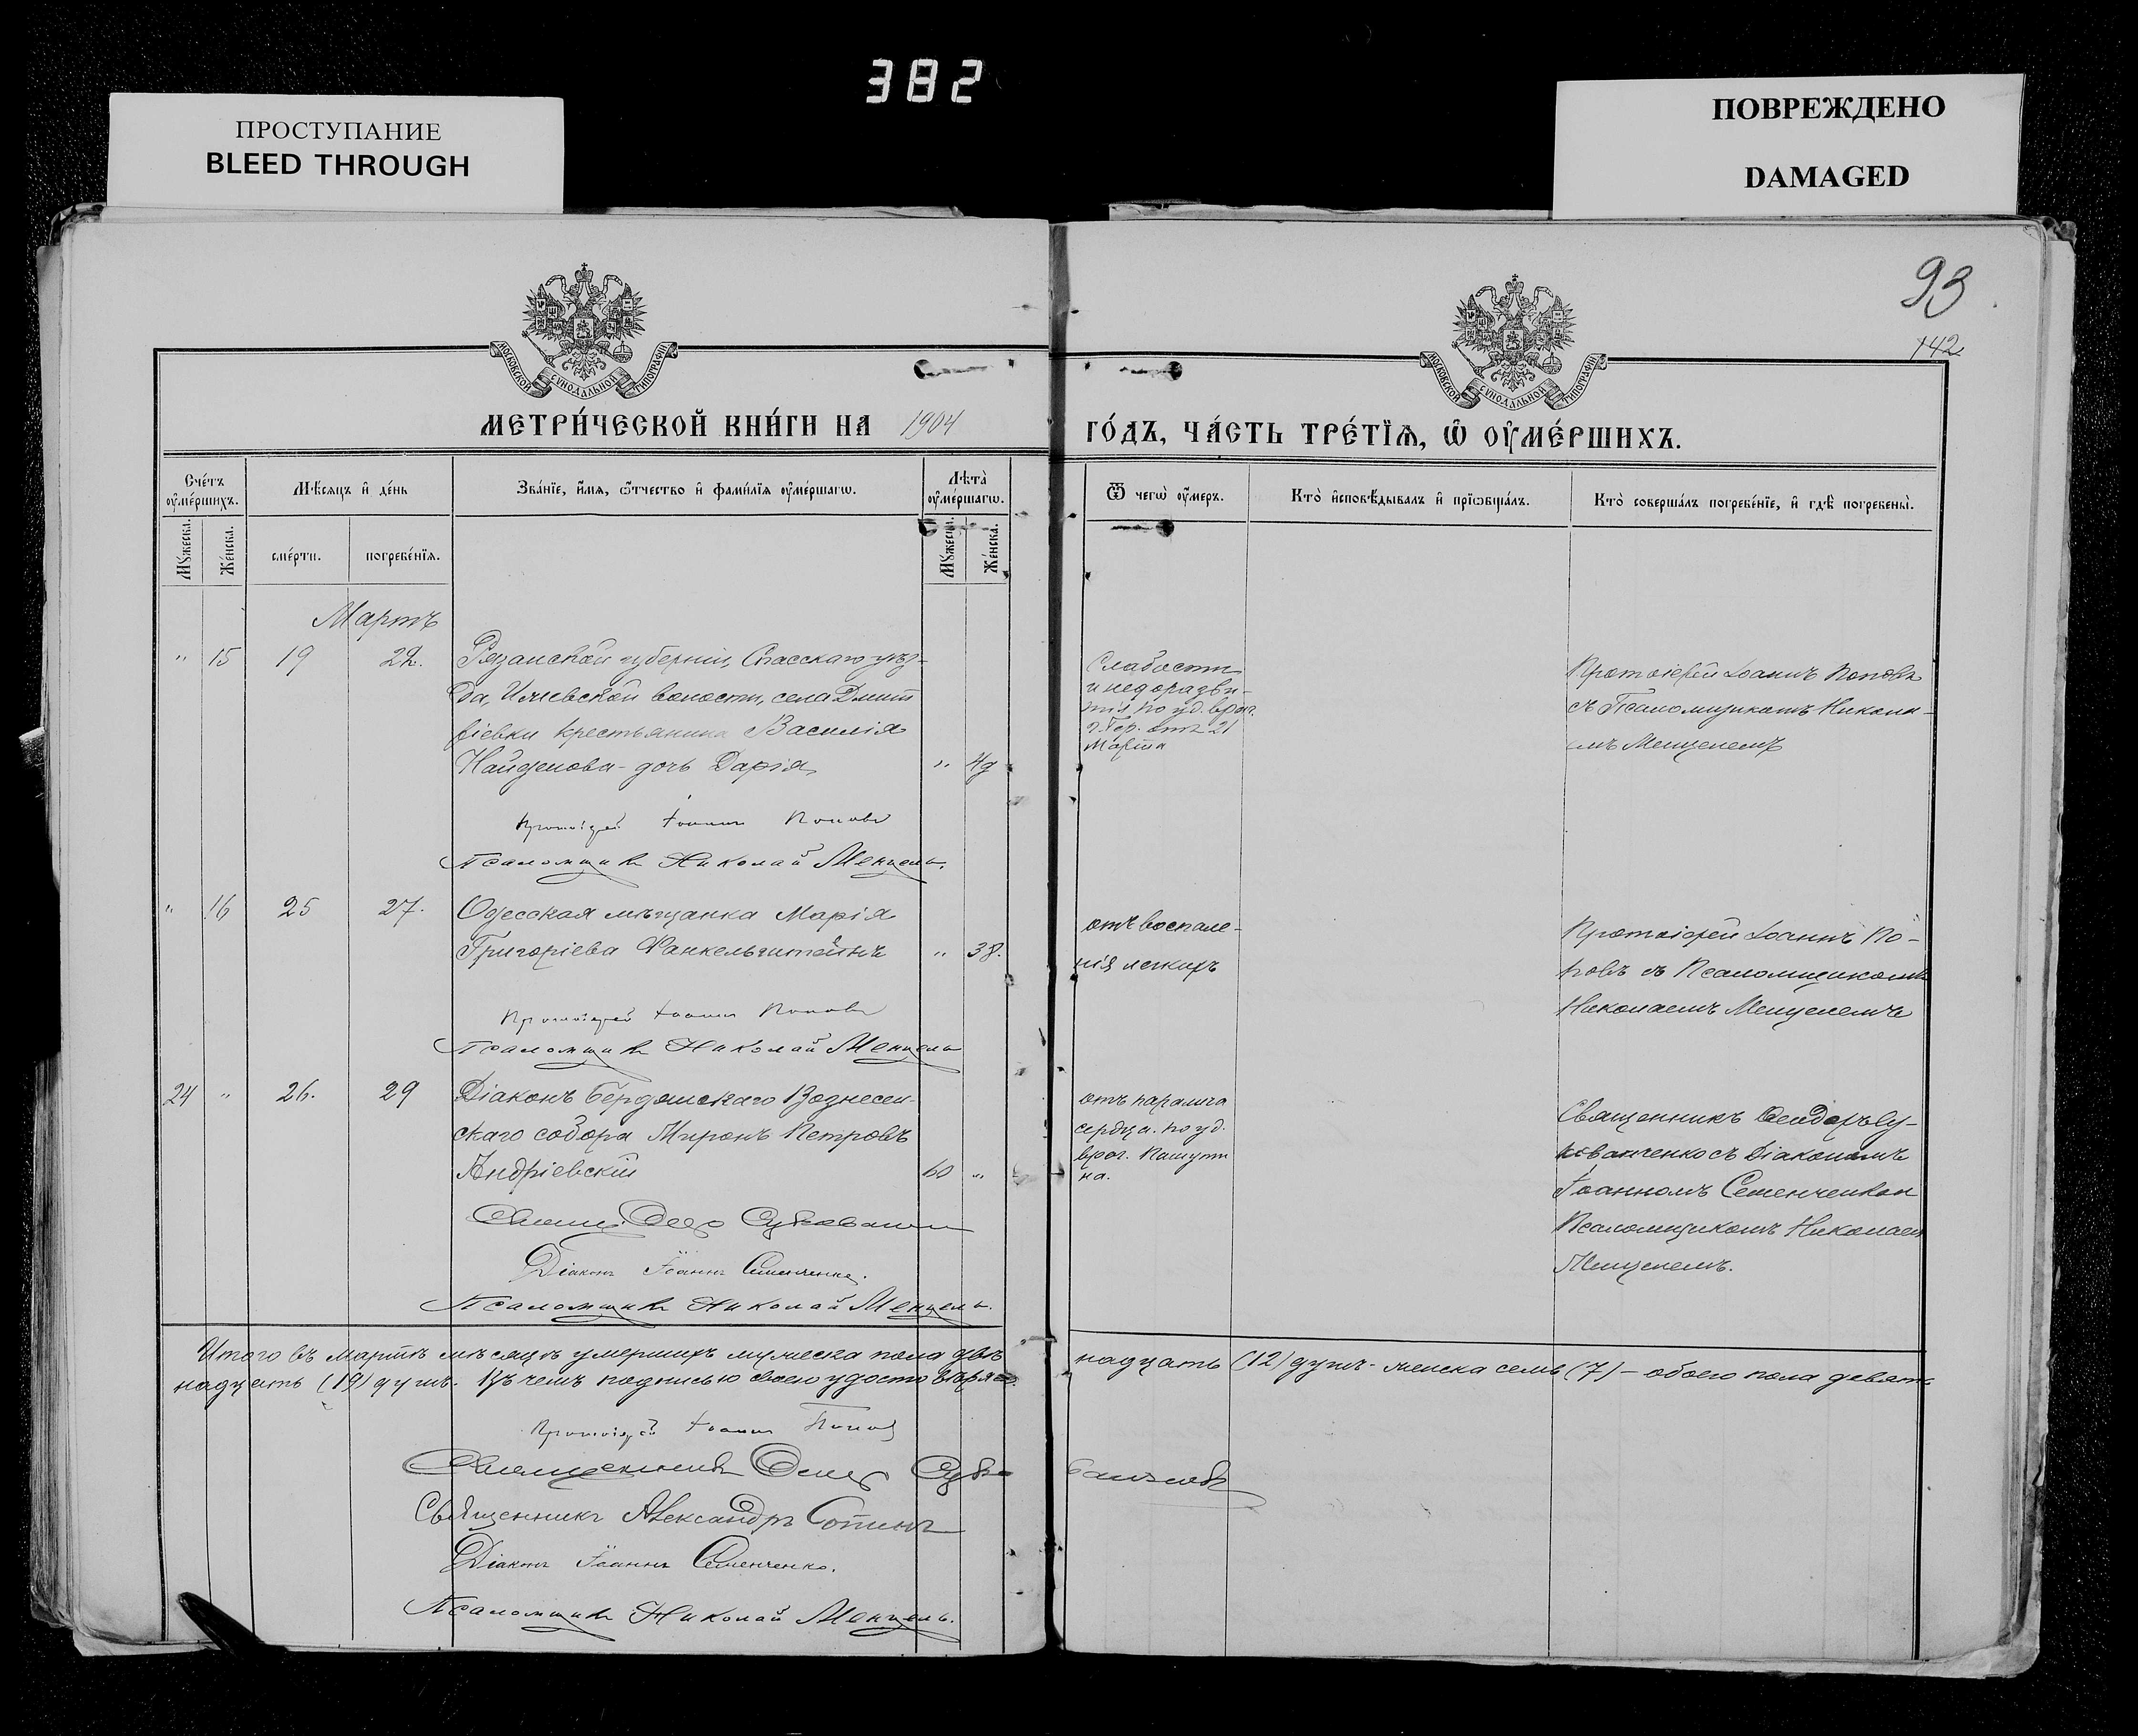 382
ПРОСТУПАНИЕ
BLEED THROUGH
ПОВРЕЖДЕНО
DAMAGED
93
142
МОСКОВСКОЙ СУНОДАЛЬНОЙ ТИПОГРАФІИ
МОСКОВСКОЙ СУНОДАЛЬНОЙ ТИПОГРАФІИ
МЕТРИ́ЧЕСКОЙ КНИ́ГИ НА 1904 ГО́ДЪ, ЧА́СТЬ ТРЕ́ТЇѦ, Ѡ ОУ҆МЕ́РШИХЪ.
Сче́тъ оу҆ме́ршихъ.
Мѣ́сяцъ и҆ де́нь
Зва́нїе, и҆́мя, ѻ҆́тчество и҆ фами́лїя оу҆ме́ршагѡ.
Лѣ́та оу҆ме́ршагѡ.
Ѿ чегѡ̀ оу҆́меръ.
Кто̀ и҆сповѣ́дывалъ и҆ прїѡбща́лъ.
Кто̀ соверша́лъ погребе́нїе, и҆ гдѣ̀ погребены̀.
Мꙋ́жеска.
Же́нска.
сме́рти.
погребе́нїя.
Мꙋ́жеска.
Же́нска.
Мартъ
" 15 19 22. Рязанской губерніи, Спасскаго уѣз-
да, Ижевской волости, села Дмит
ріевки крестьянина Василія
Найденова - дочь Дарія " 4д
Слабости
и недоразви-
тія по уд. врач.
отъ 21
Марта
Протоіерей Іоаннъ Поповъ
съ Псаломщикомъ Никола-
емъ Менцелемъ
Протоіерей Іоаннъ Поповъ
Псаломщикъ Николай Менцель.
" 16 25 27. Одесская мѣщанка Марія
Григоріева Франкельштейнъ " 38.
отъ воспале-
нія легкихъ
Протоіерей Іоаннъ По-
повъ съ Псаломщикомъ
Николаемъ Менцелемъ
Протоіерей Іоаннъ Поповъ
Псаломщикъ Николай Менцель
24 " 26. 29 Діаконъ Бердянскаго Вознесен-
скаго собора Миронъ Петровъ
Андріевскій 60 "
отъ паралича
сердца. по уд.
врач. Кашути
на.
Священникъ
съ Діакономъ
Іоанномъ Семенченко и
Псаломщикомъ Николаем
Менцелемъ.
Діаконъ Іоаннъ Семенченко.
Псаломщикъ Николай Менцель.
Итого въ мартѣ мѣсяцѣ умершихъ мужеска пола двѣ
надцать (12) душъ - женска семь (7) - обоего пола девят
надцать (19) душъ. Въ чемъ подписью своею удостовѣряю.
Протоіерей Іоаннъ Поповъ
Священникъ
Священникъ Александръ Сотинъ
Діаконъ Іоаннъ Семенченко.
Псаломщикъ Николай Менцель.